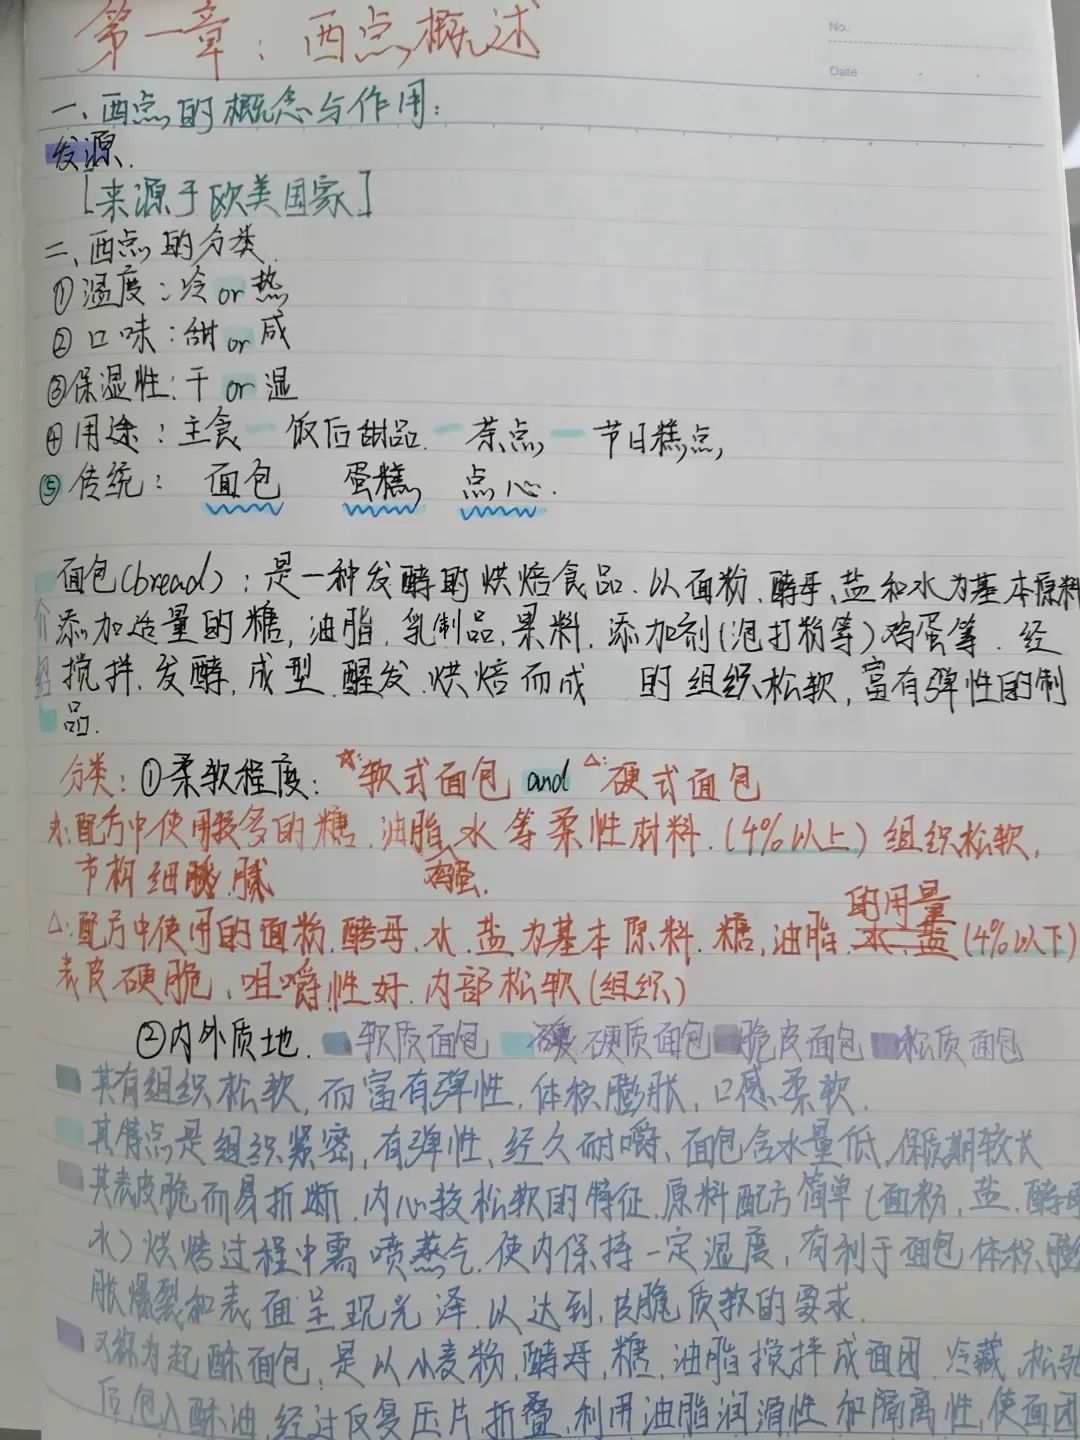 第一章：西点概述
No.
Date
一、西点的概念与作用：
发源.
[来源于欧美国家]
二、西点的分类.
①温度：冷or热
②口味：甜or咸
③保湿性：干or湿
④用途：主食 — 饭后甜品. — 茶点 — 节日糕点,
⑤传统： 面包 蛋糕 点心.
面包(bread)：是一种发酵的烘焙食品.以面粉.酵母.盐和水为基本原料
介 添加适量的糖,油脂.乳制品,果料.添加剂(泡打粉等)鸡蛋等.经
绍 搅拌.发酵,成型.醒发.烘焙而成 的组织松软,富有弹性的制
品.
分类：①柔软程度：☆:软式面包 and △:硬式面包
☆:配方中使用较多的糖.油脂.水等柔性材料.(4%以上)组织松软,
节构细腻 鸡蛋.
的用量
△:配方中使用的面粉.酵母.水.盐为基本原料.糖,油脂.水.盐(4%以下)
表皮硬脆、咀嚼性好.内部松软(组织)
②内外质地. 软质面包 硬质面包 脆皮面包 松质面包
其有组织松软,而富有弹性,体积膨胀,口感柔软.
其特点是组织紧密,有弹性、经久耐嚼、面包含水量低,保质期较长
其表皮脆而易折断.内心较松软的特征.原料配方简单(面粉,盐.酵母
水)烘烤过程中需喷蒸气.使内保持一定湿度,有利于面包体积膨
胀爆裂和表面呈现光泽.以达到,皮脆质软的要求.
又称为起酥面包,是以小麦粉,酵母,糖,油脂搅拌成面团.冷藏,松弛
后包入酥油,经过反复压片.折叠,利用油脂润滑性和隔离性,使面团